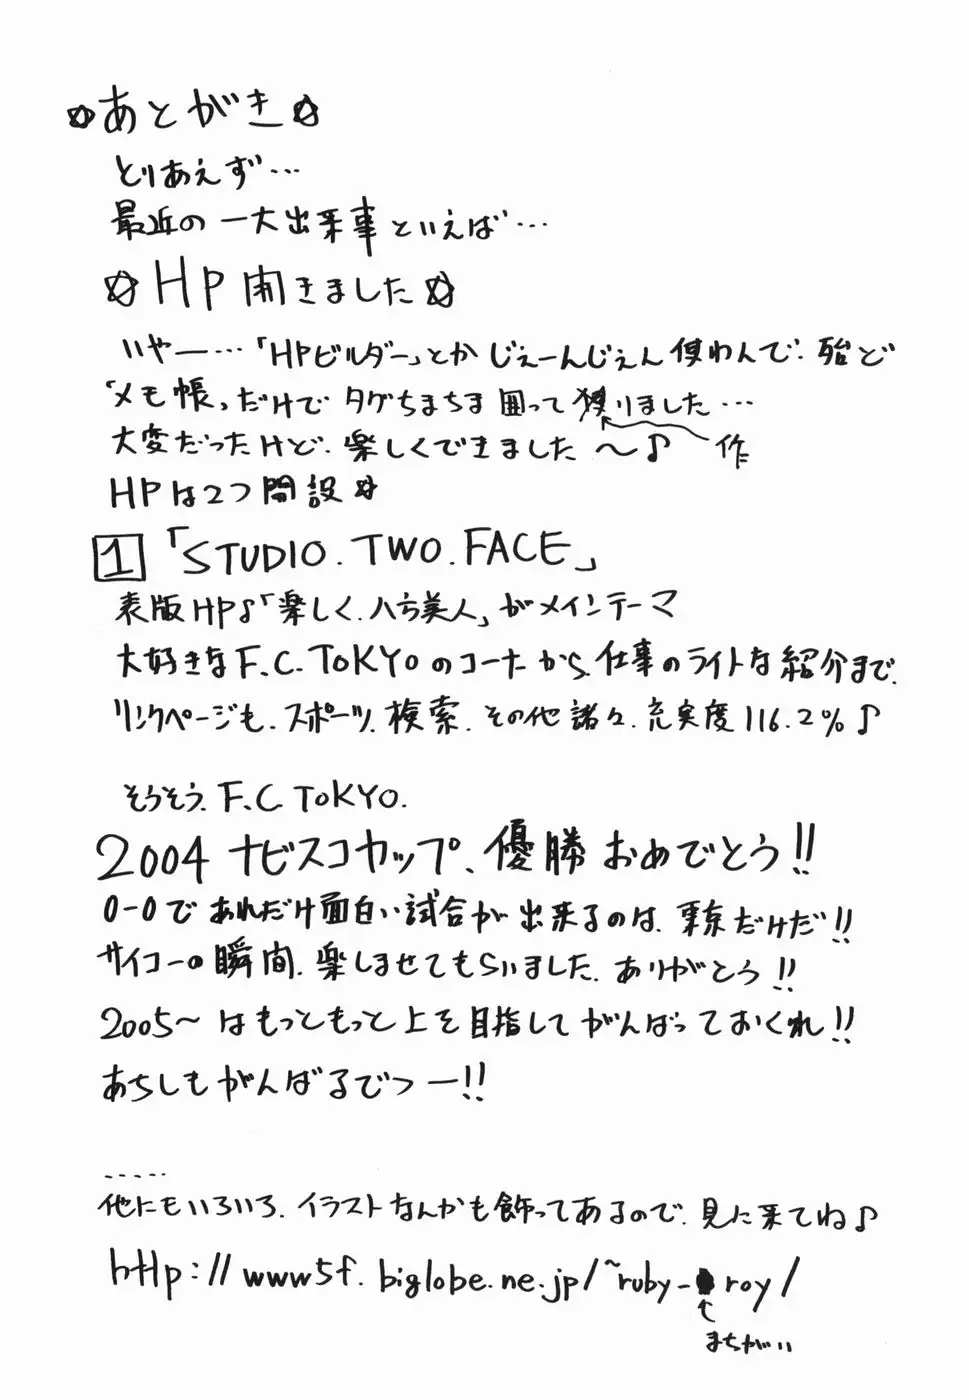 ☆あとがき☆
とりあえず…
最近の一大出来事といえば…
☆HP開きました☆
いやー…「HPビルダー」とかじぇーんじぇん使わんで、殆ど
「メモ帳」だけでタグちまちま囲って獲りました…
作
大変だったけど、楽しくできました〜♪
HPは2つ開設☆
1「STUDIO.TWO.FACE」
表版HP♪「楽しく、八方美人」がメインテーマ
大好きなF.C.TOKYOのコーナから、仕事のライトな紹介まで、
リンクページも、スポーツ、検索、その他諸々、充実度116.2%♪
そうそう、F.C TOKYO.
2004ナビスコカップ、優勝おめでとう!!
0-0であれだけ面白い試合が出来るのは、東京だけだ!!
サイコーの瞬間、楽しませてもらいました、ありがとう!!
2005〜はもっともっと上を目指してがんばっておくれ!!
あちしもがんばるでつー!!
.....
他にもいろいろ、イラストなんかも飾ってあるので、見に来てね♪
http://www5f.biglobe.ne.jp/~ruby-roy/
まちがい